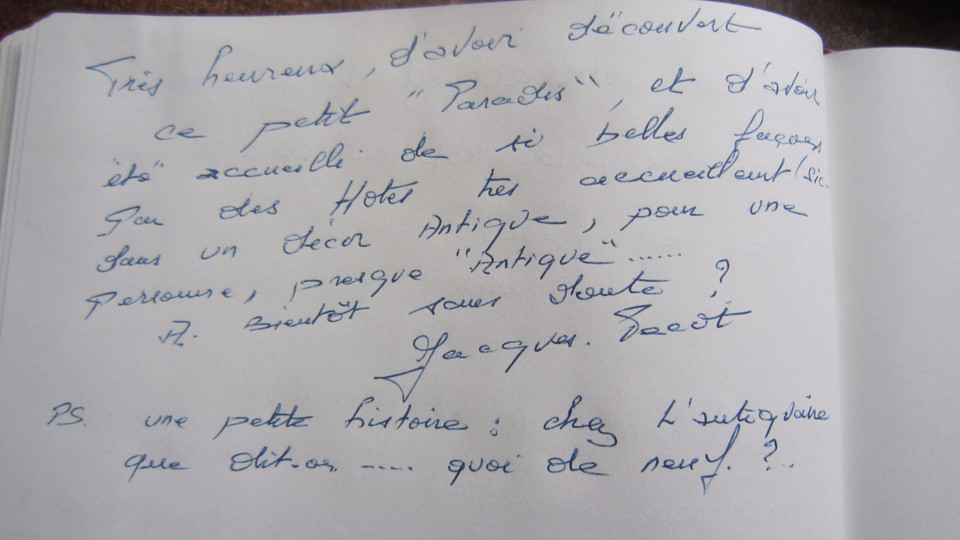 Très heureux, d'avoir découvert
ce petit "Paradis", et d'avoir
été accueilli de si belles façons
Par des Hotes très accueillant (sic..
dans un décor Antique, pour une
Personne, presque "Antique"......
A. Bientôt sans doute ?
Jacques.
PS. une petite histoire : chez L'antiquaire
que dit-on ..... quoi de neuf. ?..